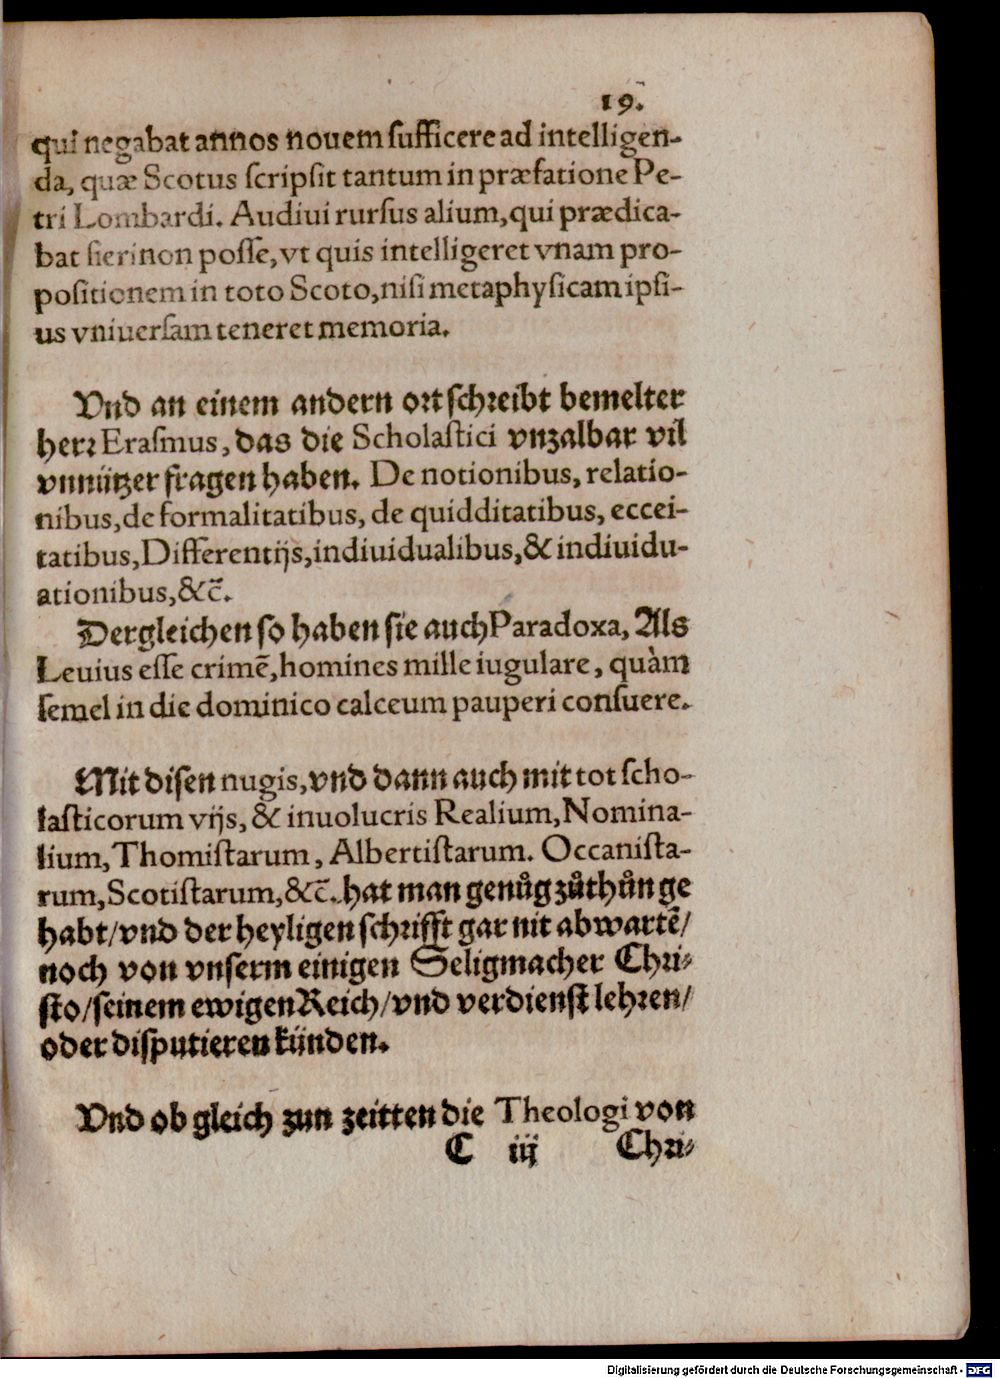 19.
qui negabat annos nouem sufficere ad intelligen-
da, quæ Scotus scripsit tantum in præfatione Pe-
tri Lombardi. Audiui rursus alium, qui prædica-
bat fieri non posse, vt quis intelligeret vnam pro-
positionem in toto Scoto, nisi metaphysicam ipsi-
us vniuersam teneret memoria.
Vnd an einem andern ort schreibt bemelter
herr Erasmus, das die Scholastici vnzalbar vil
vnnützer fragen haben. De notionibus, relatio-
nibus, de formalitatibus, de quidditatibus, eccei-
tatibus, Differentijs, indiuidualibus, & indiuidu-
ationibus, &c̄.
Dergleichen so haben sie auch Paradoxa, Als
Leuius esse crimē, homines mille iugulare, quàm
semel in die dominico calceum pauperi consuere.
Mit disen nugis, vnd dann auch mit tot scho-
lasticorum vijs, & inuolucris Realium, Nomina-
lium, Thomistarum, Albertistarum. Occanista-
rum, Scotistarum, &c̄. hat man genůg zůthůn ge
habt/ vnd der heyligen schrifft gar nit abwartē/
noch von vnserm einigen Seligmacher Chri-
sto/ seinem ewigen Reich/ vnd verdienst lehren/
oder disputieren künden.
Vnd ob gleich zun zeitten die Theologi von
C iij Chri-
Digitalisierung gefördert durch die Deutsche Forschungsgemeinschaft - DFG